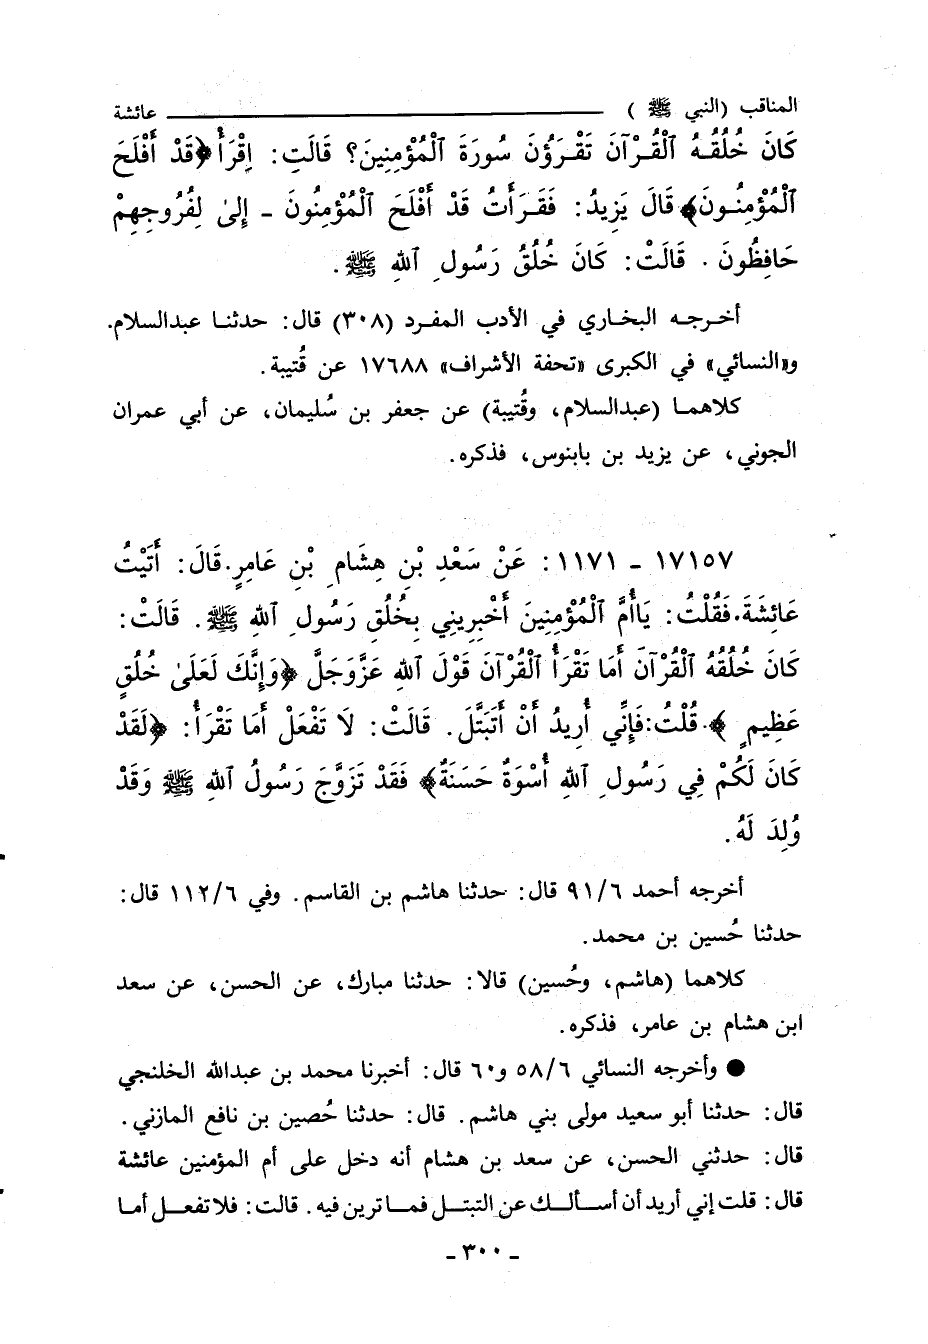 المناقب (النبي ﷺ) ــــــــــــــــــــــــ عائشة
كَانَ خُلُقُهُ ٱلْقُرْآنَ تَقْرَؤُنَ سُورَةَ ٱلْمُؤْمِنِينَ؟ قَالَتِ: اِقْرَأْ ﴿قَدْ أَفْلَحَ
ٱلْمُؤْمِنُونَ﴾ قَالَ يَزِيدُ: فَقَرَأَتُ قَدْ أَفْلَحَ ٱلْمُؤْمِنُونَ ـ إِلىٰ لِفُرُوجِهِمْ
حَافِظُونَ . قَالَتْ: كَانَ خُلُقُ رَسُولِ ٱللهِ ﷺ.
أخرجه البخاري في الأدب المفرد (٣٠٨) قال: حدثنا عبدالسلام.
و«النسائي» في الكبرى «تحفة الأشراف» ١٧٦٨٨ عن قُتيبة.
كلاهما (عبدالسلام، وقُتيبة) عن جعفر بن سُليمان، عن أبي عمران
الجوني، عن يزيد بن بابنوس، فذكره.
١٧١٥٧ ـ ١١٧١: عَنْ سَعْدِ بْنِ هِشَامِ بْنِ عَامِرٍ. قَالَ: أَتَيْتُ
عَائِشَةَ. فَقُلْتُ: يَاأُمَّ ٱلْمُؤْمِنِينَ أَخْبِرِينِي بِخُلُقِ رَسُولِ ٱللهِ ﷺ. قَالَتْ:
كَانَ خُلُقُهُ ٱلْقُرْآنَ أَمَا تَقْرَأُ ٱلْقُرْآنَ قَوْلَ ٱللهِ عَزَّوَجَلَّ ﴿وَإِنَّكَ لَعَلَىٰ خُلُقٍ
عَظِيمٍ﴾. قُلْتُ: فَإِنِّي أُرِيدُ أَنْ أَتَبَتَّلَ. قَالَتْ: لَا تَفْعَلْ أَمَا تَقْرَأُ: ﴿لَقَدْ
كَانَ لَكُمْ فِي رَسُولِ ٱللهِ أُسْوَةٌ حَسَنَةٌ﴾ فَقَدْ تَزَوَّجَ رَسُولُ ٱللهِ ﷺ وَقَدْ
وُلِدَ لَهُ.
أخرجه أحمد ٩١/٦ قال: حدثنا هاشم بن القاسم. وفي ١١٢/٦ قال:
حدثنا حُسين بن محمد.
كلاهما (هاشم، وحُسين) قالا: حدثنا مبارك، عن الحسن، عن سعد
ابن هشام بن عامر، فذكره.
● وأخرجه النسائي ٥٨/٦ و٦٠ قال: أخبرنا محمد بن عبدالله الخلنجي
قال: حدثنا أبو سعيد مولى بني هاشم. قال: حدثنا حُصين بن نافع المازني.
قال: حدثني الحسن، عن سعد بن هشام أنه دخل على أم المؤمنين عائشة
قال: قلت إني أريد أن أسألك عن التبتل فما ترين فيه. قالت: فلا تفعل أما
ـ ٣٠٠ ـ